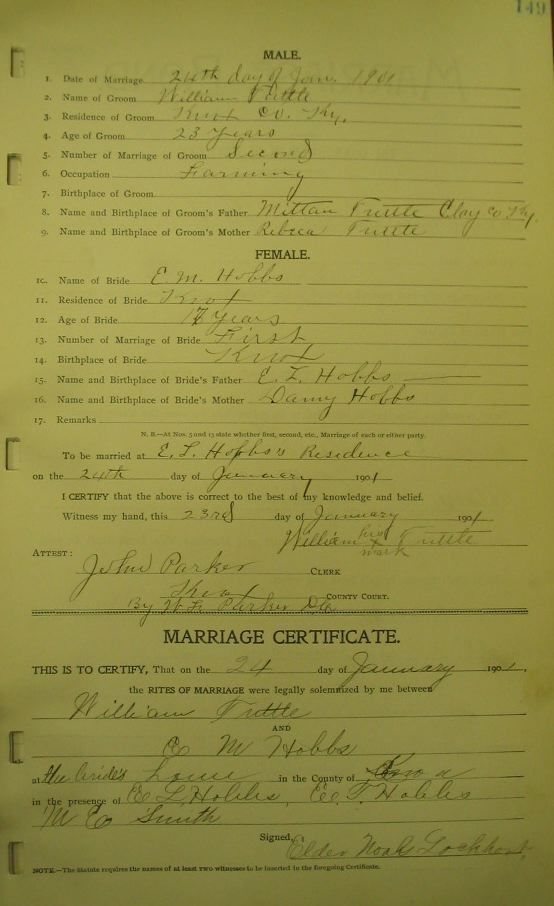 149
MALE.
1. Date of Marriage 24th day of Jan. 1901
2. Name of Groom William Tuttle
3. Residence of Groom Knox Co. Ky.
4. Age of Groom 23 years
5. Number of Marriage of Groom Second
6. Occupation Farming
7. Birthplace of Groom
8. Name and Birthplace of Groom's Father Mittan Tuttle Clay Co Ky.
9. Name and Birthplace of Groom's Mother Rebeca Tuttle
FEMALE.
10. Name of Bride E. M. Hobbs
11. Residence of Bride Knox
12. Age of Bride 17 years
13. Number of Marriage of Bride First
14. Birthplace of Bride Knox
15. Name and Birthplace of Bride's Father E. L. Hobbs
16. Name and Birthplace of Bride's Mother Damy Hobbs
17. Remarks
N. B.—At Nos. 5 and 13 state whether first, second, etc., Marriage of each or either party.
To be married at E. L. Hobbs's Residence
on the 24th day of January 1901
I CERTIFY that the above is correct to the best of my knowledge and belief.
Witness my hand, this 23rd day of January 1901
William his x mark Tuttle
ATTEST:
John Parker CLERK
Knox COUNTY COURT.
By Parker DC
MARRIAGE CERTIFICATE.
THIS IS TO CERTIFY, That on the 24 day of January 1901,
the RITES OF MARRIAGE were legally solemnized by me between
William Tuttle
AND
E M Hobbs
at the bride's home in the County of Knox
in the presence of E L Hobbs, E. T. Hobbs
M E Smith
Signed, Elder Noah Lockhart
NOTE.—The Statute requires the names of at least two witnesses to be inserted in the foregoing Certificate.